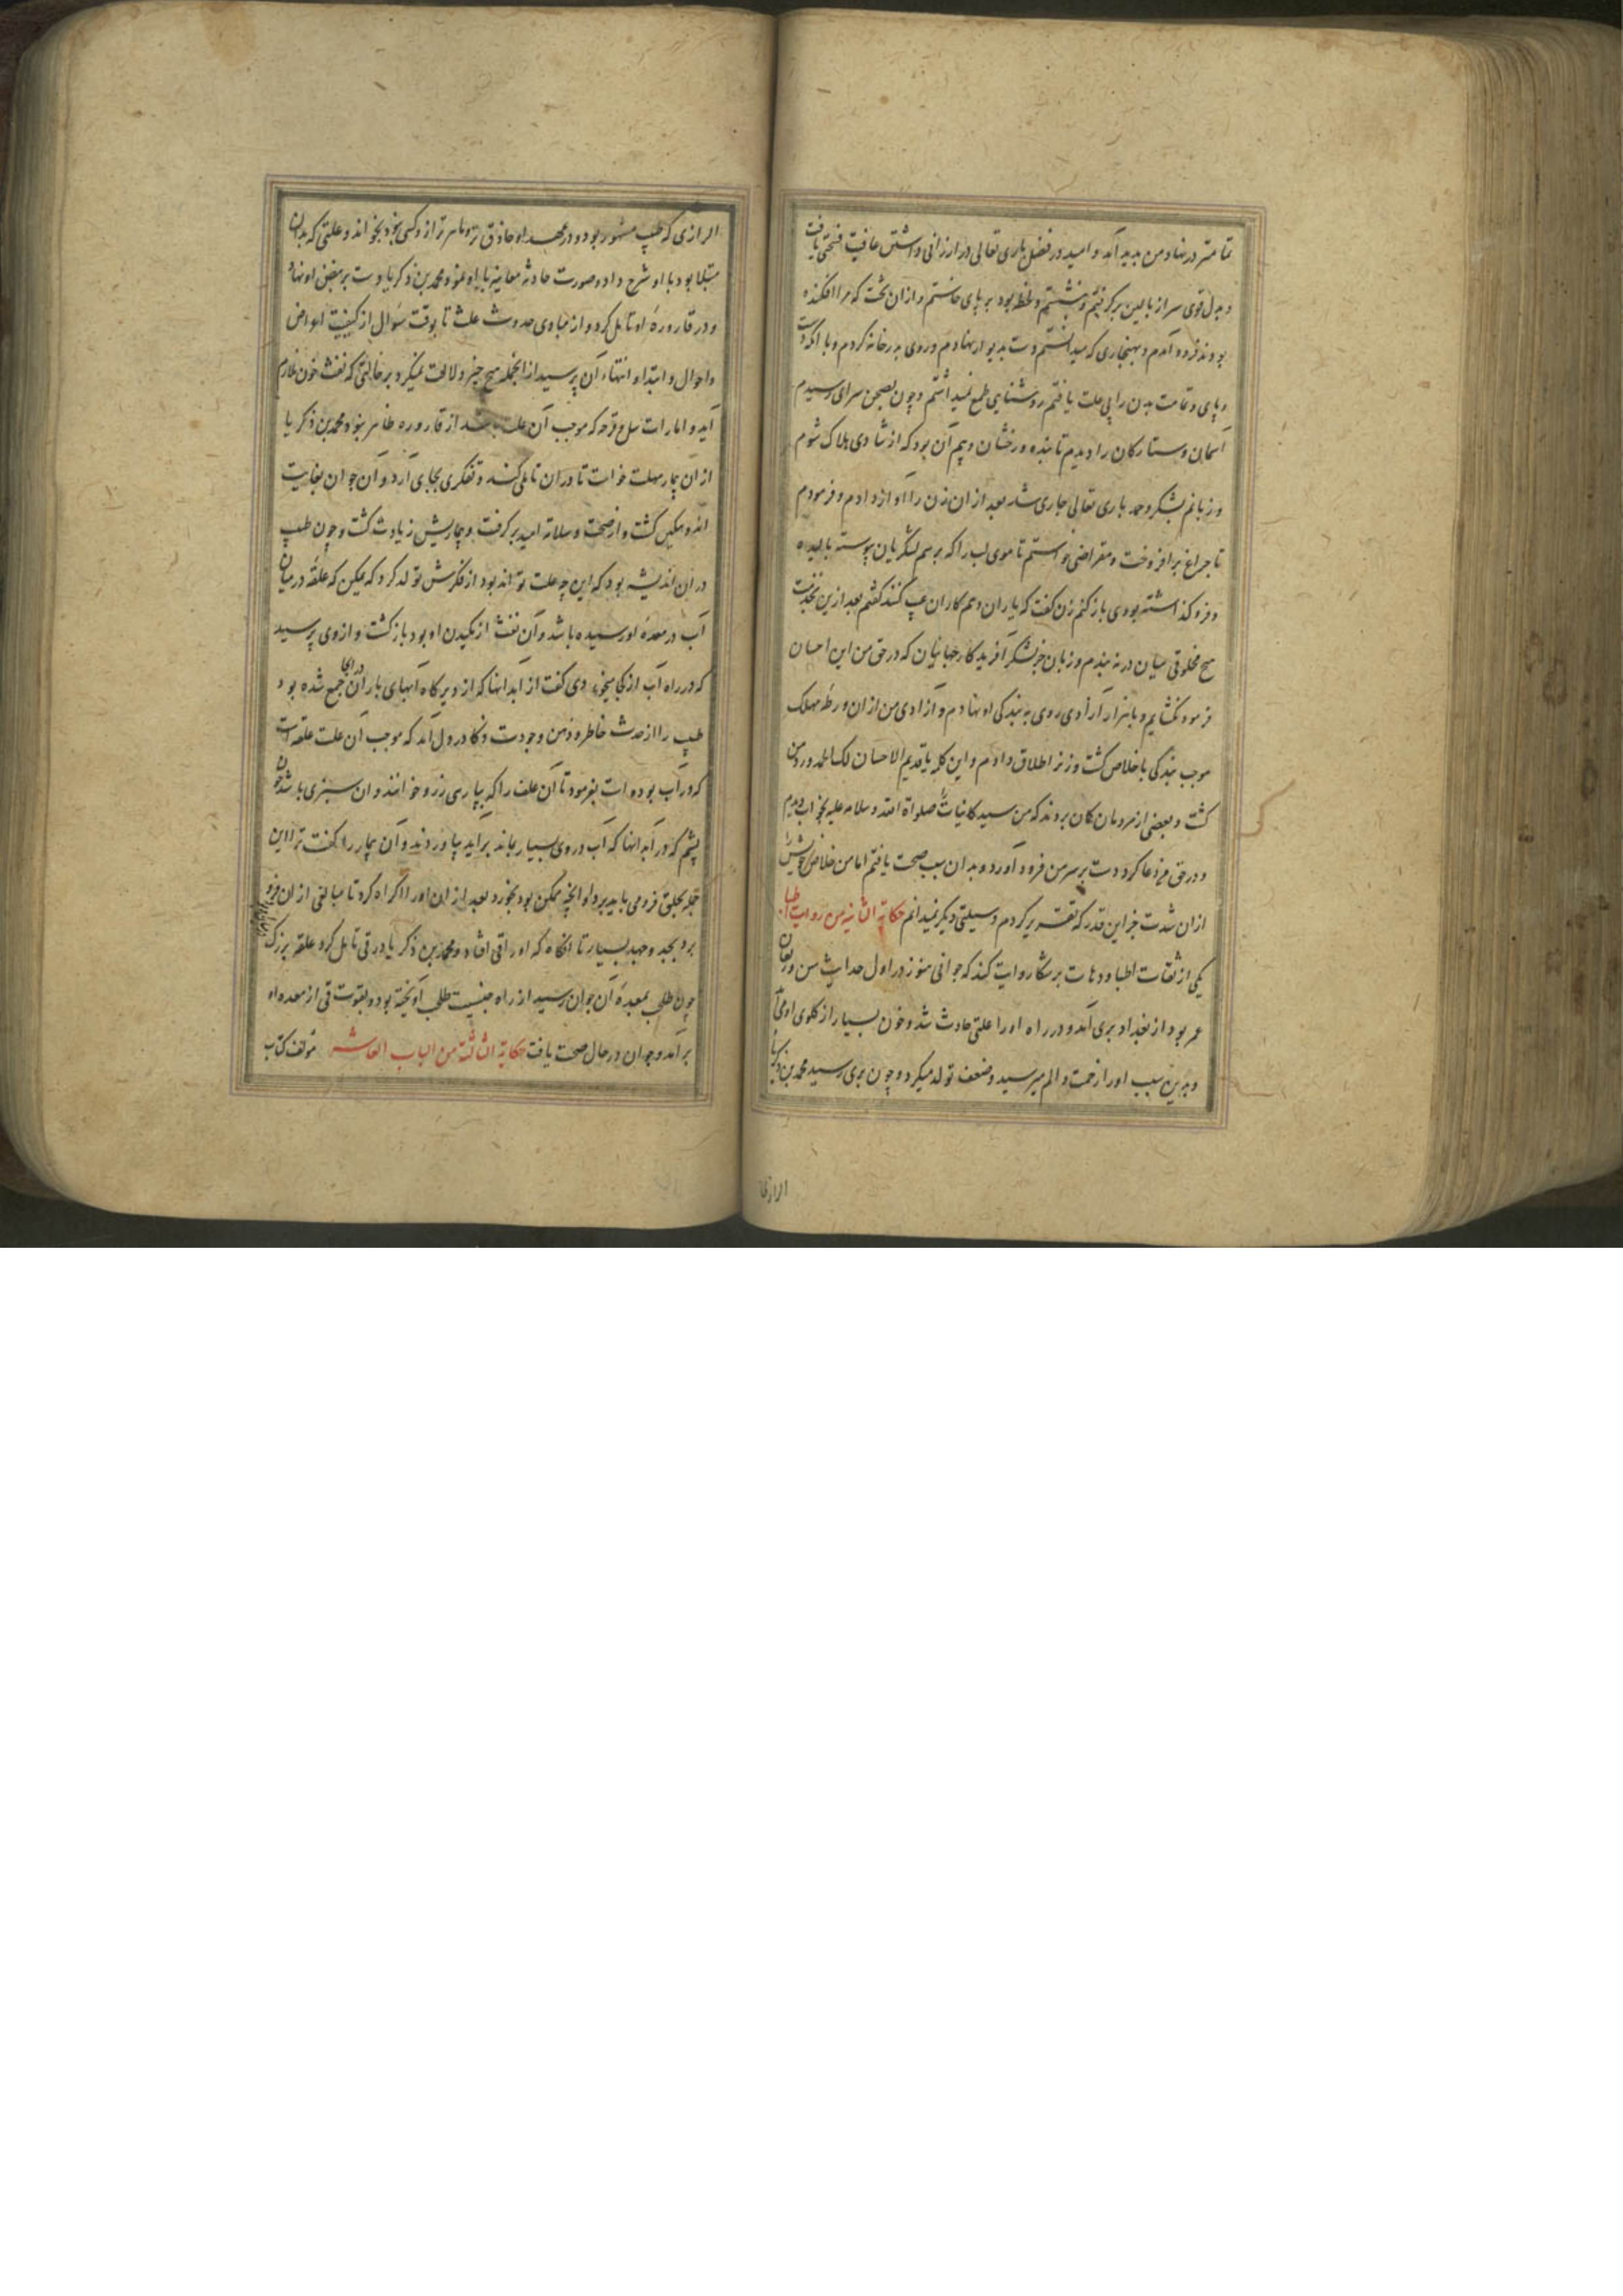 تمامتر در نهاد من بدید آمد و امید در فضل باری تعالی در ارزانی داشتن عافیت فسحتی یافت
و بدل قوی سر از بالین برگرفتم و بنشستم و لحظه بود بر پای خاستم و از ان تخت که مرا افکنده
بودند فرود آمدم و بهنجاری که میدانستم دست بدیوار نهادم و روی بدر خانه کردم و با آنکه دست
و پای و تمامت بدن را بی علت یافتم روشنایی طمع نمیداشتم و چون بصحن سرای رسیدم
آسمان و ستارکان را دیدم تابنده و رخشان و بیم آن بود که از شادی هلاک شوم
و زبانم بشکر و حمد باری تعالی جاری شد بعد از ان زن را آواز دادم و فرمودم
تا چراغ برافروخت و مقراضی خواستم تا موی لب را که برسم لشکریان پیوسته بالیده
و فرو کذاشته بودی باز کنم زن کفت که یاران و هم کاران عیب کنند کفتم بعد ازین بخدمت
هیچ مخلوقی میان در نه بندم و زبان جز بشکر آفریدکار جهانیان که در حق من این احسان
فرمود نکشایم و با هزار آزادی روی به بندکی او نهادم و آزادی من از ان ورطه مهلک
موجب بندکی با خلاص کشت و زن را طلاق دادم و این کلمه یا قدیم الاحسان لک الحمد ورد من
کشت و بعضی از مردمان کمان بردند که من سید کاینات را صلواة الله و سلامه علیه بخواب دیدم
و در حق من دعا کرد و دست بر سر من فرود آورد و بدان سبب صحت یافتم اما من خلاص خویش را
ازان شدت جز این قدر که تقریر کردم وسیلتی دیکر نمیدانم حکایة الثانیة من روایت اطبا
یکی از ثقات اطبا و دهات بر سکا روایت کند که جوانی هنوز در اول حداثت سن و ریعان
عمر بود از بغداد بری آمد و در راه او را علتی حادث شد و خون بسیار از کلوی او می آمد
و بدین سبب او را زحمت و الم میرسید و ضعف تولد میکرد و چون بری رسید محمد بن زکریا
الرازی
الرازی که طبیب مشهور بود و در عهد او حاذق تر و ماهر تر از و کسی نبود بخواند و علتی که بدان
مبتلا بود با او شرح داد و صورت حادثه معاینه باو نمود محمد بن زکریا دست بر نبض او نهاد
و در قاروره او تامل کرد و از مبادی حدوث علت تا بوقت سؤال از کیفیت اعراض
و احوال و ابتدا و انتهاء آن پرسید از آنجمله هیچ چیز دلالت نمیکرد بر حالتی که نفث خون لازم
آید و امارات سل و قرحه که موجب آن علت باشد از قاروره ظاهر نبود محمد بن زکریا
ازان بیمار مهلت خواست تا دران تاملی کند و تفکری بجای آرد و آن جوان بغایت
اندوهکین کشت و از صحت و سلامة امید برکرفت و بیماریش زیادت کشت و چون طبیب
دران اندیشه بود که این چه علت تواند بود از فکرش تولد کرد که ممکن که علقه در میان
آب در معده او رسیده باشد و آن نفث از مکیدن او بود باز کشت و از وی پرسید
که در راه آب از کجا میخورد دی کفت از آبدانها که از دیرکاه آبهای باران در انجا جمع شده بود
طبیب را از حدت خاطر و ذهن وجودت ذکا در دل آمد که موجب آن علت علقه است
که در آب بوده است بفرمود تا آن علف را که بپارسی زرو خوانند و ان سبزی باشد چون
پشم که در آبدانها که آب در وی بسیار بماند برآید بیاوردند و آن بیمار را کفت ترا این
جمله بحلق فرو می باید برد او آنچه ممکن بود بخورد بعد از ان او را اکراه کرد تا مبالغی از ان فرو
برد بجد و جهد بسیار تا انکاه که او را قی افتاد و محمد بن زکریا در قی تامل کرد علقه بزرک
چون طحلب بمعده آن جوان رسید از راه جنسیت طلب آویخته بود و بقوت قی از معده او
برآمد و جوان در حال صحت یافت حکایة الثالثة من الباب العاشر مؤلف کتاب